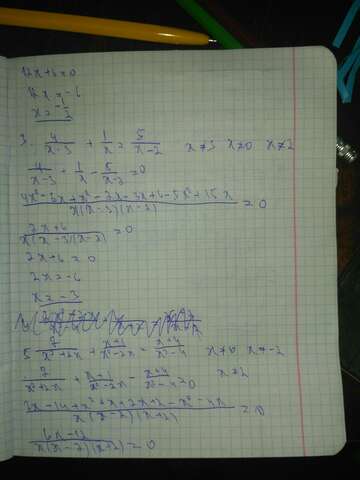 12x+6=0
12x=-6
x=-1/2
3. 4/(x-3) + 1/x = 5/(x-2) x≠3 x≠0 x≠2
4/(x-3) + 1/x - 5/(x-2) = 0
(4x²-8x+x²-2x-3x+6-5x²+15x)/(x(x-3)(x-2)) = 0
(2x+6)/(x(x-3)(x-2)) = 0
2x+6=0
2x=-6
x=-3
5 7/(x²+2x) + (x+1)/(x²-2x) = (x+4)/(x²-4) x≠0 x≠-2
x≠2
7/(x²+2x) + (x+1)/(x²-2x) - (x+4)/(x²-4) = 0
(7x-14+x²+x+2x+2-x²-4x)/(x(x-2)(x+2)) = 0
(6x-12)/(x(x-2)(x+2)) = 0